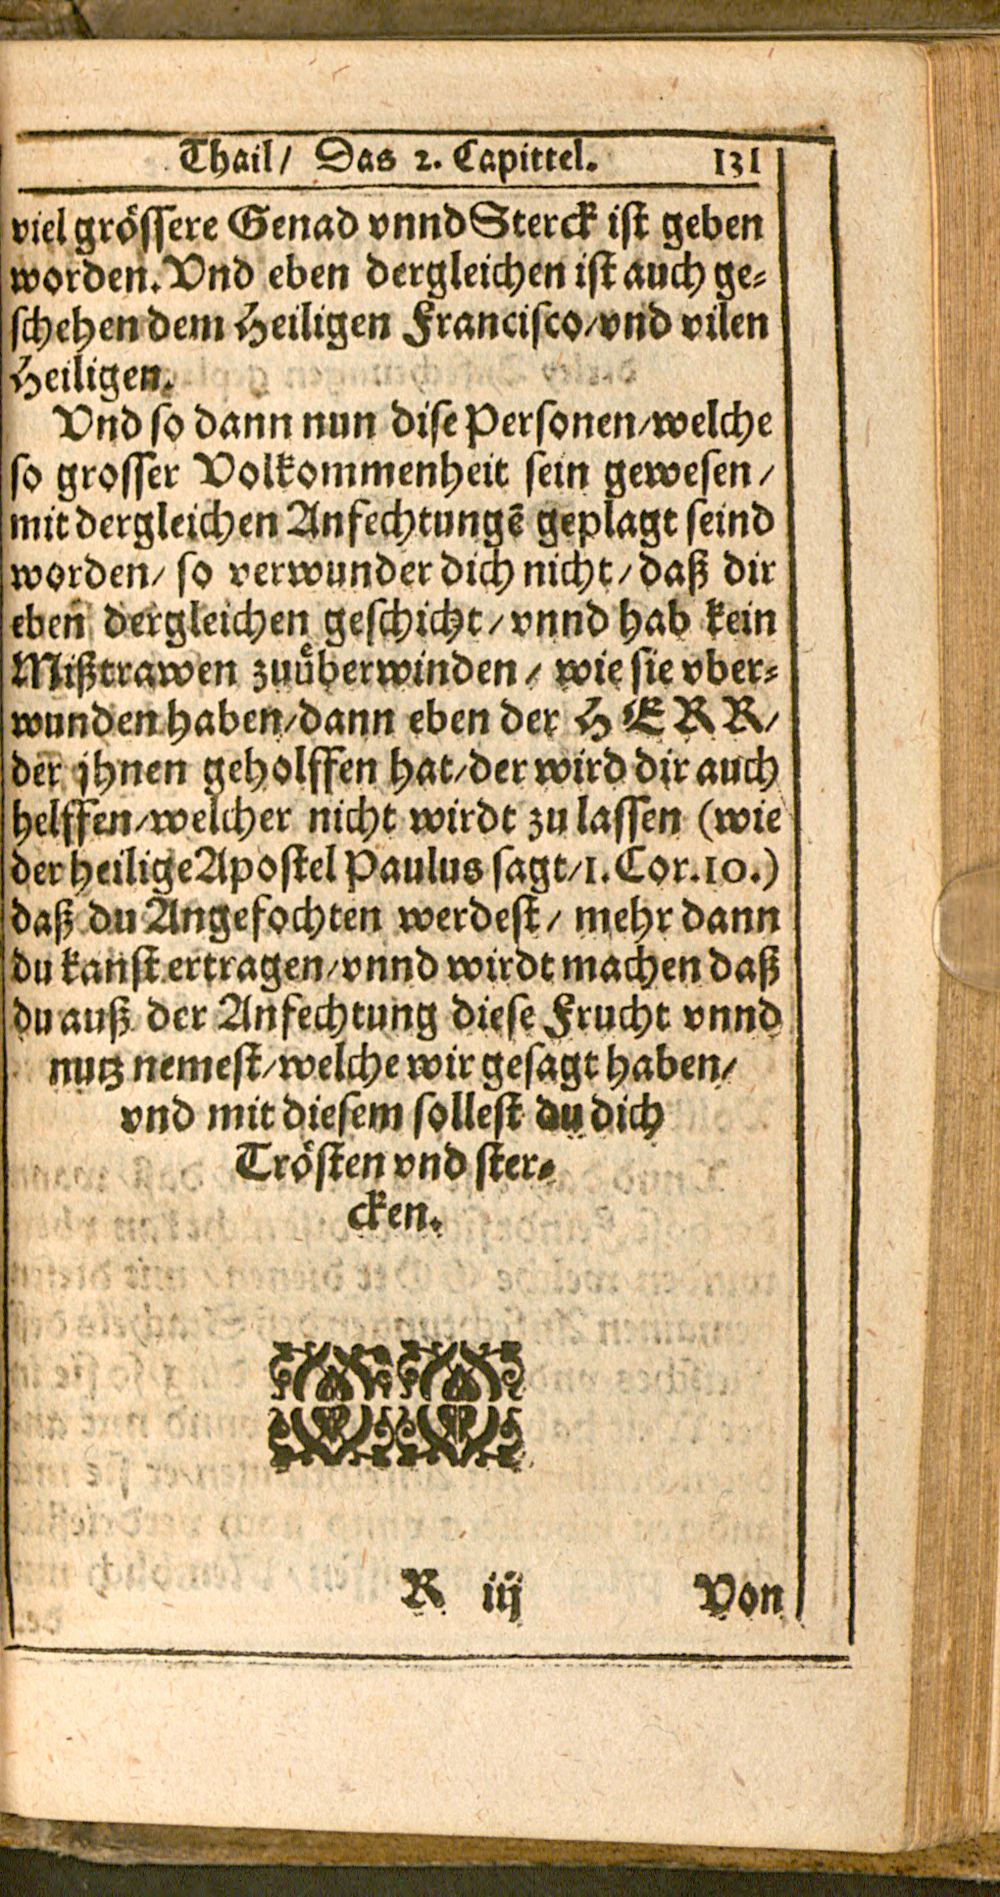 Thail/ Das 2. Capittel. 131
viel grössere Genad vnnd Sterck ist geben
worden. Vnd eben dergleichen ist auch ge-
schehen dem Heiligen Francisco/vnd vilen
Heiligen.
Vnd so dann nun dise Personen/welche
so grosser Volkommenheit sein gewesen/
mit dergleichen Anfechtungē geplagt seind
worden/ so verwunder dich nicht/ daß dir
eben dergleichen geschicht/ vnnd hab kein
Mißtrawen zuüberwinden/ wie sie vber-
wunden haben/dann eben der HERR/
der jhnen geholffen hat/der wird dir auch
helffen/welcher nicht wirdt zu lassen (wie
der heilige Apostel Paulus sagt/1. Cor. 10.)
daß du Angefochten werdest/ mehr dann
du kanst ertragen/vnnd wirdt machen daß
du auß der Anfechtung diese Frucht vnnd
nutz nemest/welche wir gesagt haben/
vnd mit diesem sollest du dich
Trösten vnd ster-
cken.
R iij Von